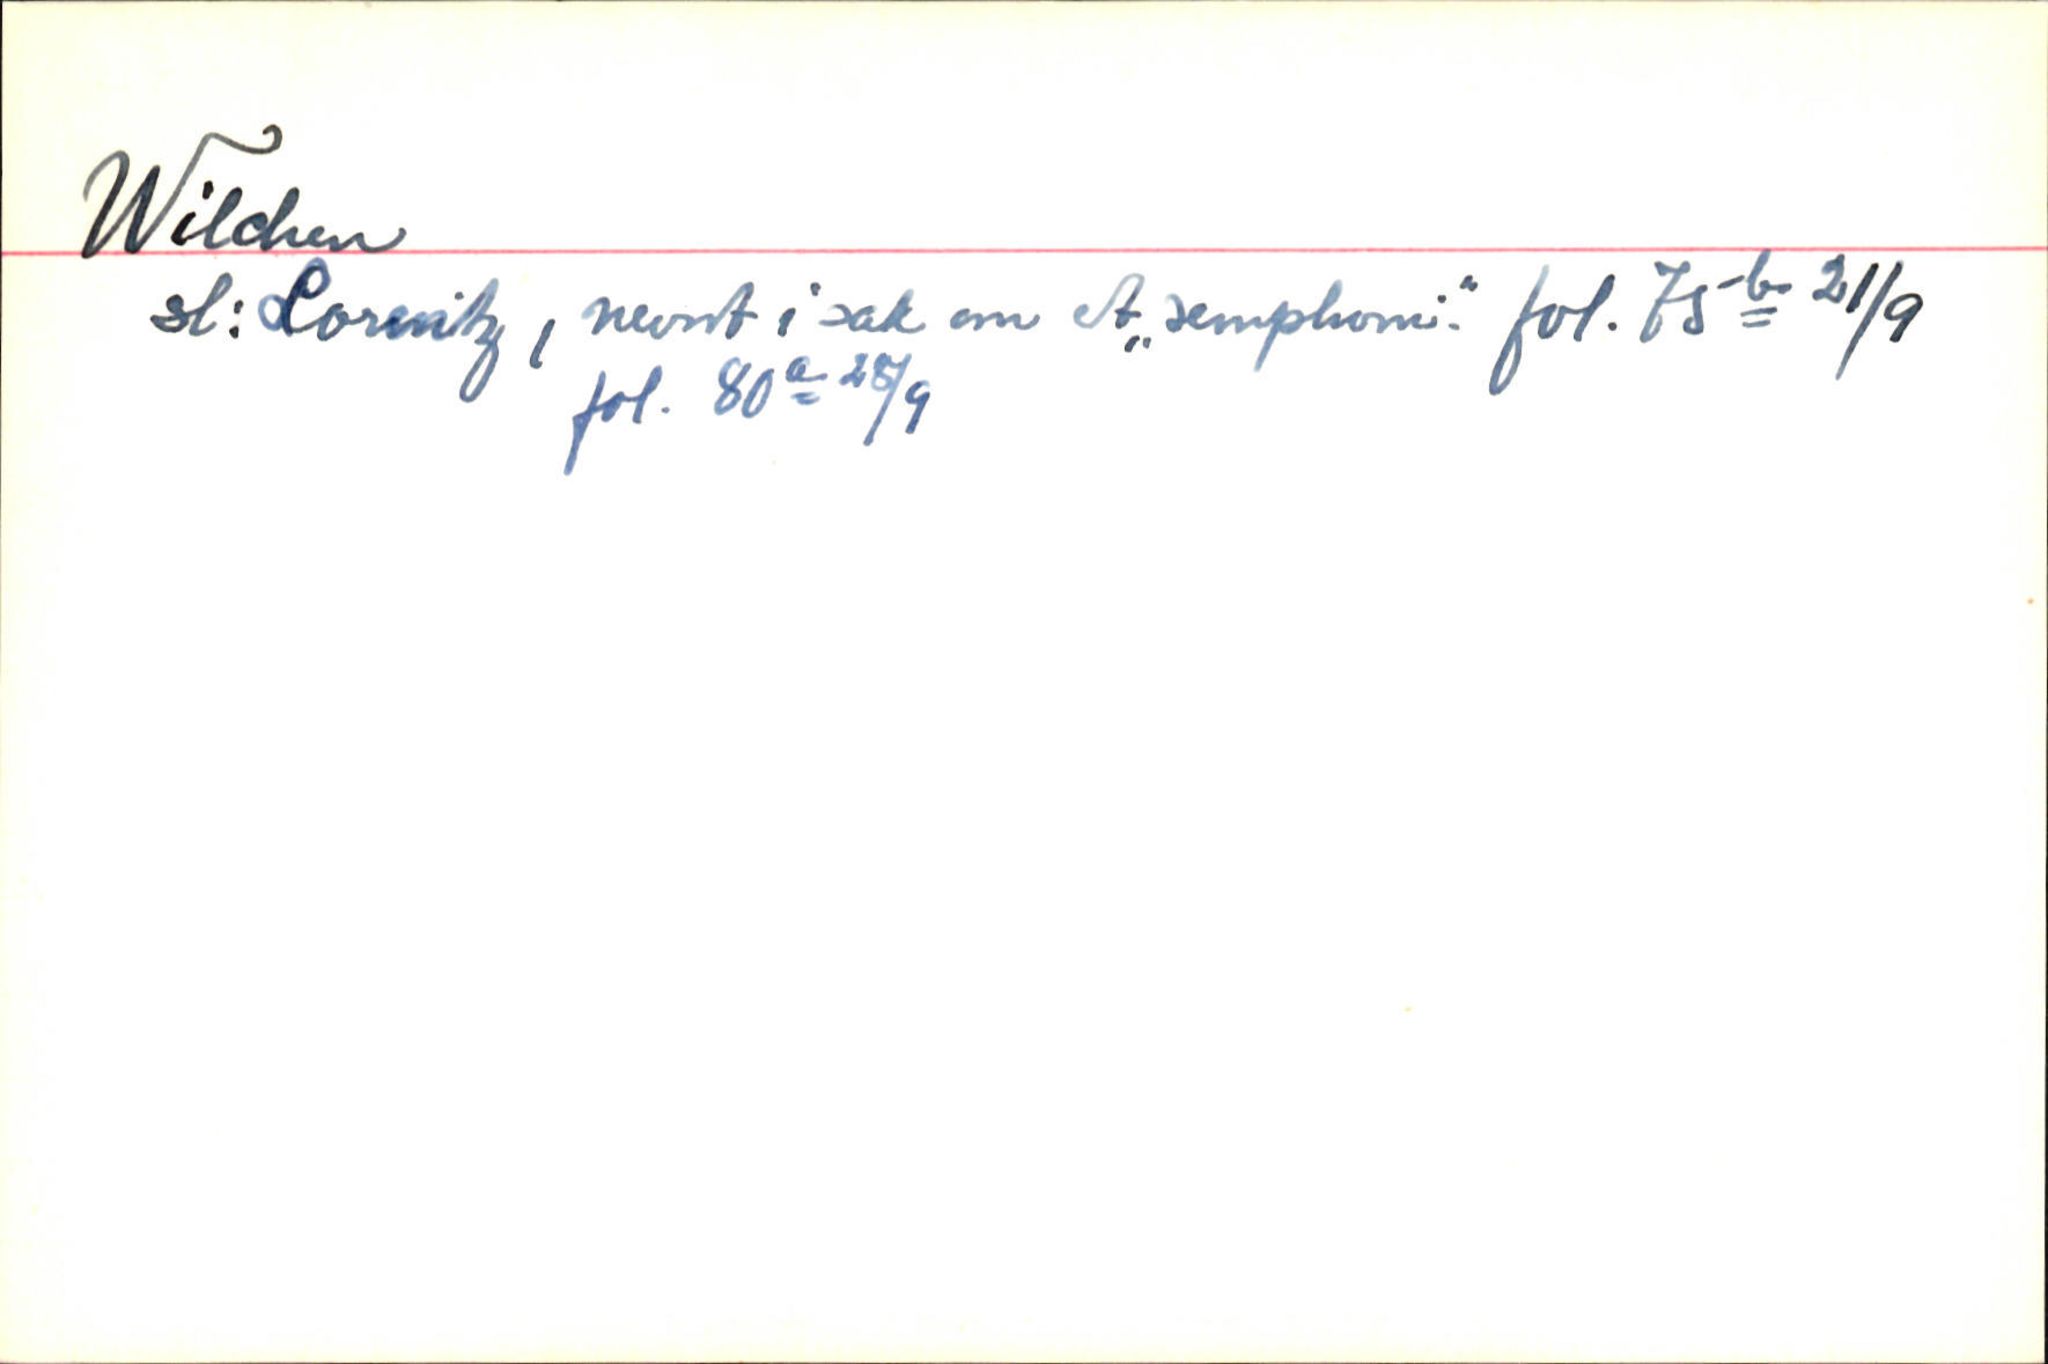 Wilchen
sl: Lorentz, nevnt i sak om et „semphoni.“ fol. 75 b 21/9
fol. 80 a 28/9